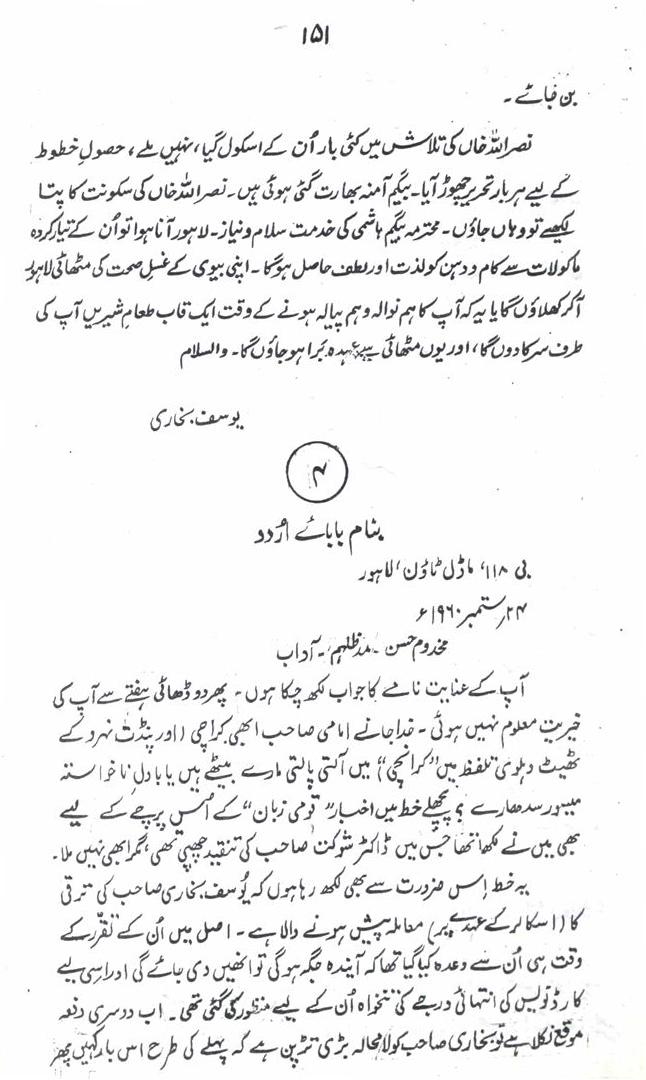 ۱۵۱
بن جائے ۔
نصر اللہ خاں کی تلاش میں کئی بار اُن کے اسکول گیا، نہیں ملے، حصولِ خطوط
کے لیے ہر بار تحریر چھوڑ آیا۔ بیگم آمنہ بھارت گئی ہوئی ہیں۔ نصر اللہ خاں کی سکونت کا پتا
لکھیے تو وہاں جاؤں۔ محترمہ بیگم ہاشمی کی خدمت سلام و نیاز۔ لاہور آنا ہوا تو اُن کے تیار کردہ
ماکولات سے کام و دہن کو لذت اور لطف حاصل ہوگا۔ اپنی بیوی کے غسلِ صحت کی مٹھائی لاہور
آکر کھلاؤں گا یا یہ کہ آپ کا ہم نوالہ و ہم پیالہ ہونے کے وقت ایک قاب طعامِ شیریں آپ کی
طرف سرکا دوں گا، اور یوں مٹھائی سے عہدہ برا ہو جاؤں گا۔ والسلام
یوسف بخاری
۴
بنام بابائے اُردو
بی ۱۱۸، ماڈل ٹاؤن، لاہور
۲۴ ستمبر ۱۹۶۰ء
مخدوم حسن۔ مدظلہم۔ آداب
آپ کے عنایت نامے کا جواب لکھ چکا ہوں۔ پھر دو ڈھائی ہفتے سے آپ کی
خیریت معلوم نہیں ہوئی۔ خدا جانے امامی صاحب ابھی کراچی (اور پنڈت نہرو کے
ٹھیٹ دہلوی تلفظ میں "کرانچی") میں آلتی پالتی مارے بیٹھے ہیں یا بادل ناخواستہ
میسور سدھارے؟ پچھلے خط میں اخبار "قومی زبان" کے اُس پرچے کے لیے
بھی میں نے لکھا تھا جس میں ڈاکٹر شوکت صاحب کی تنقید چھپی تھی، مگر ابھی نہیں ملا۔
یہ خط اِس ضرورت سے بھی لکھ رہا ہوں کہ یُوسف بخاری صاحب کی ترقی
کا (اسکالر کے عہدے پر) معاملہ پیش ہونے والا ہے۔ اصل میں اُن کے تقرّر کے
وقت ہی اُن سے وعدہ کیا گیا تھا کہ آیندہ جگہ ہوگی تو انھیں دی جائے گی اور اسی لیے
کارڈ نویس کی انتہائی درجے کی تنخواہ اُن کے لیے منظور کی گئی تھی۔ اب دوسری دفعہ
موقع نکلا ہے تو بخاری صاحب کو لامحالہ بڑی تڑپن ہے کہ پہلے کی طرح اس بار کہیں پھر